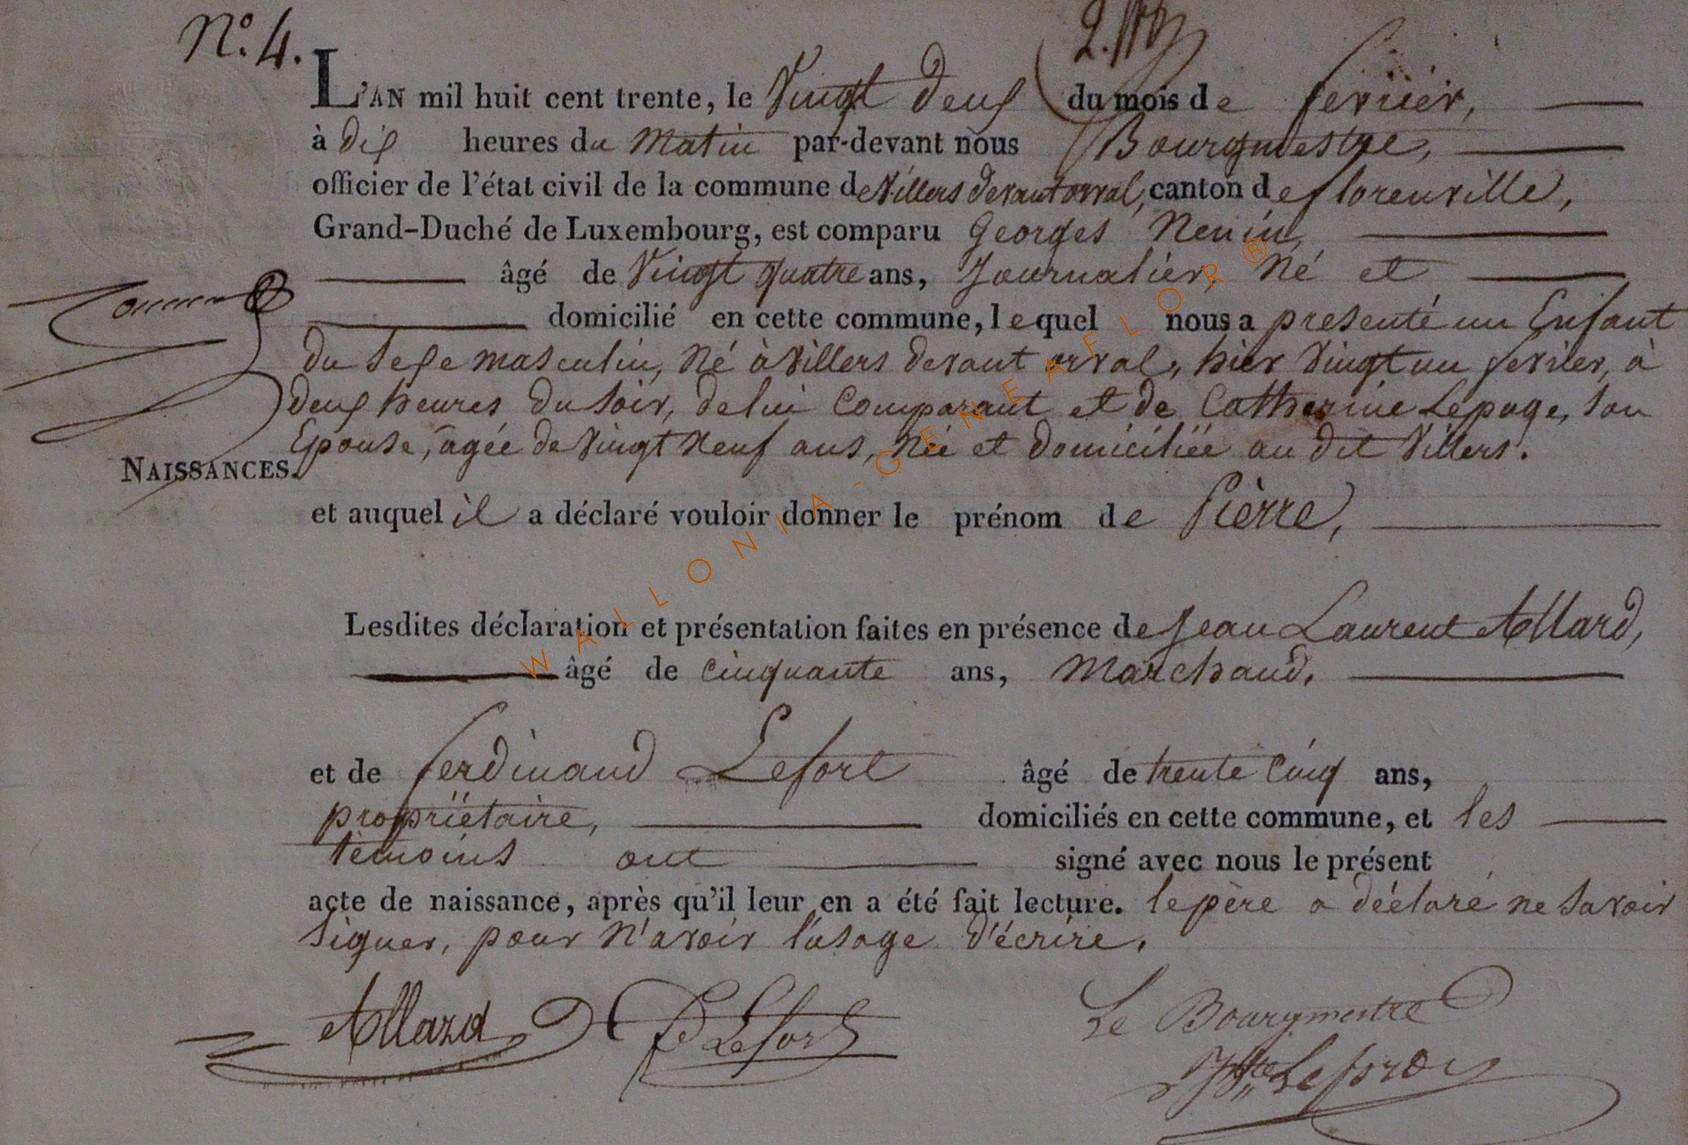 N.° 4.
L'AN mil huit cent trente, le Vingt deux du mois de fevrier,
à dix heures du Matin par-devant nous Bourgmestre,
officier de l'état civil de la commune de Villers devant orval, canton de florenville,
Grand-Duché de Luxembourg, est comparu Georges Nenin,
âgé de Vingt quatre ans, Journalier, Né et
domicilié en cette commune, lequel nous a presenté un Enfant
du Sexe masculin, Né à Villers devant orval, hier Vingt un fevrier, à
deux heures du Soir, de lui Comparant et de Catherine Lepage, Son
Epouse, agée de Vingt Neuf ans, Née et domiciliée au dit Villers.
NAISSANCES.
et auquel il a déclaré vouloir donner le prénom de Pièrre,
Lesdites déclaration et présentation faites en présence de Jean Laurent Allard,
âgé de cinquante ans, Marchand,
et de ferdinand Lefort âgé de trente Cinq ans,
propriëtaire, domiciliés en cette commune, et les
témoins ont signé avec nous le présent
acte de naissance, après qu'il leur en a été fait lecture. le père a déclaré ne Savoir
Signer, pour N'avoir l'usage d'écrire.
Allard Lefort Le Bourgmestre
WALLONIA-GENEAFLOR®